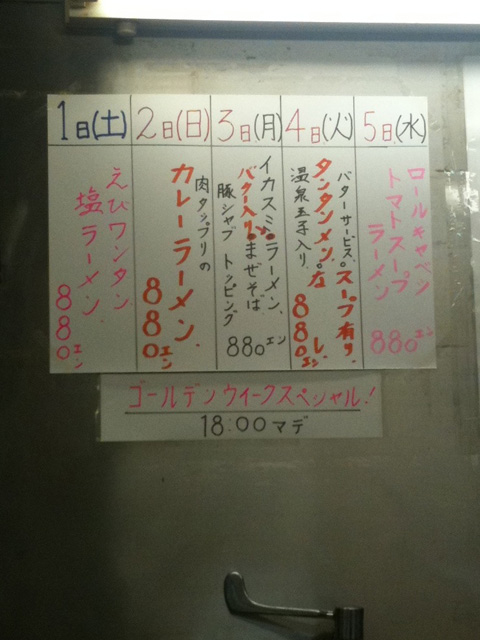 1日(土)
えびワンタン
塩ラーメン
880エン
2日(日)
肉タップリの
カレーラーメン
880エン
3日(月)
イカスミラーメン、
バター入り。まぜそば
豚シャブトッピング
880エン
4日(火)
バターサービス。スープ有り
タンタンメン。なし
温泉玉子入り
880エン
5日(水)
ロールキャベツ
トマトスープ
ラーメン
880エン
ゴールデンウイークスペシャル!
18:00マデ